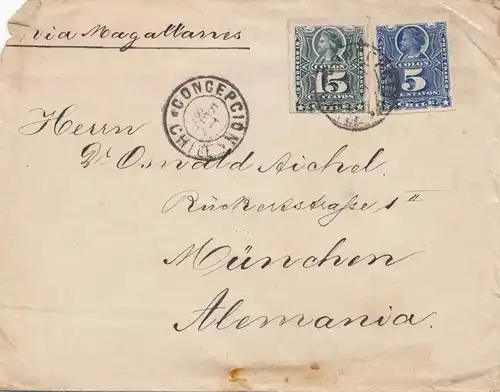 via Magallanes
COLON
15
CENTAVOS
COLON
5
CENTAVOS
CHILE
CONCEPCION
CHILE
Herrn
Dr. Oswald Aichel.
Rückertstraße 1 II
München
Alemania.